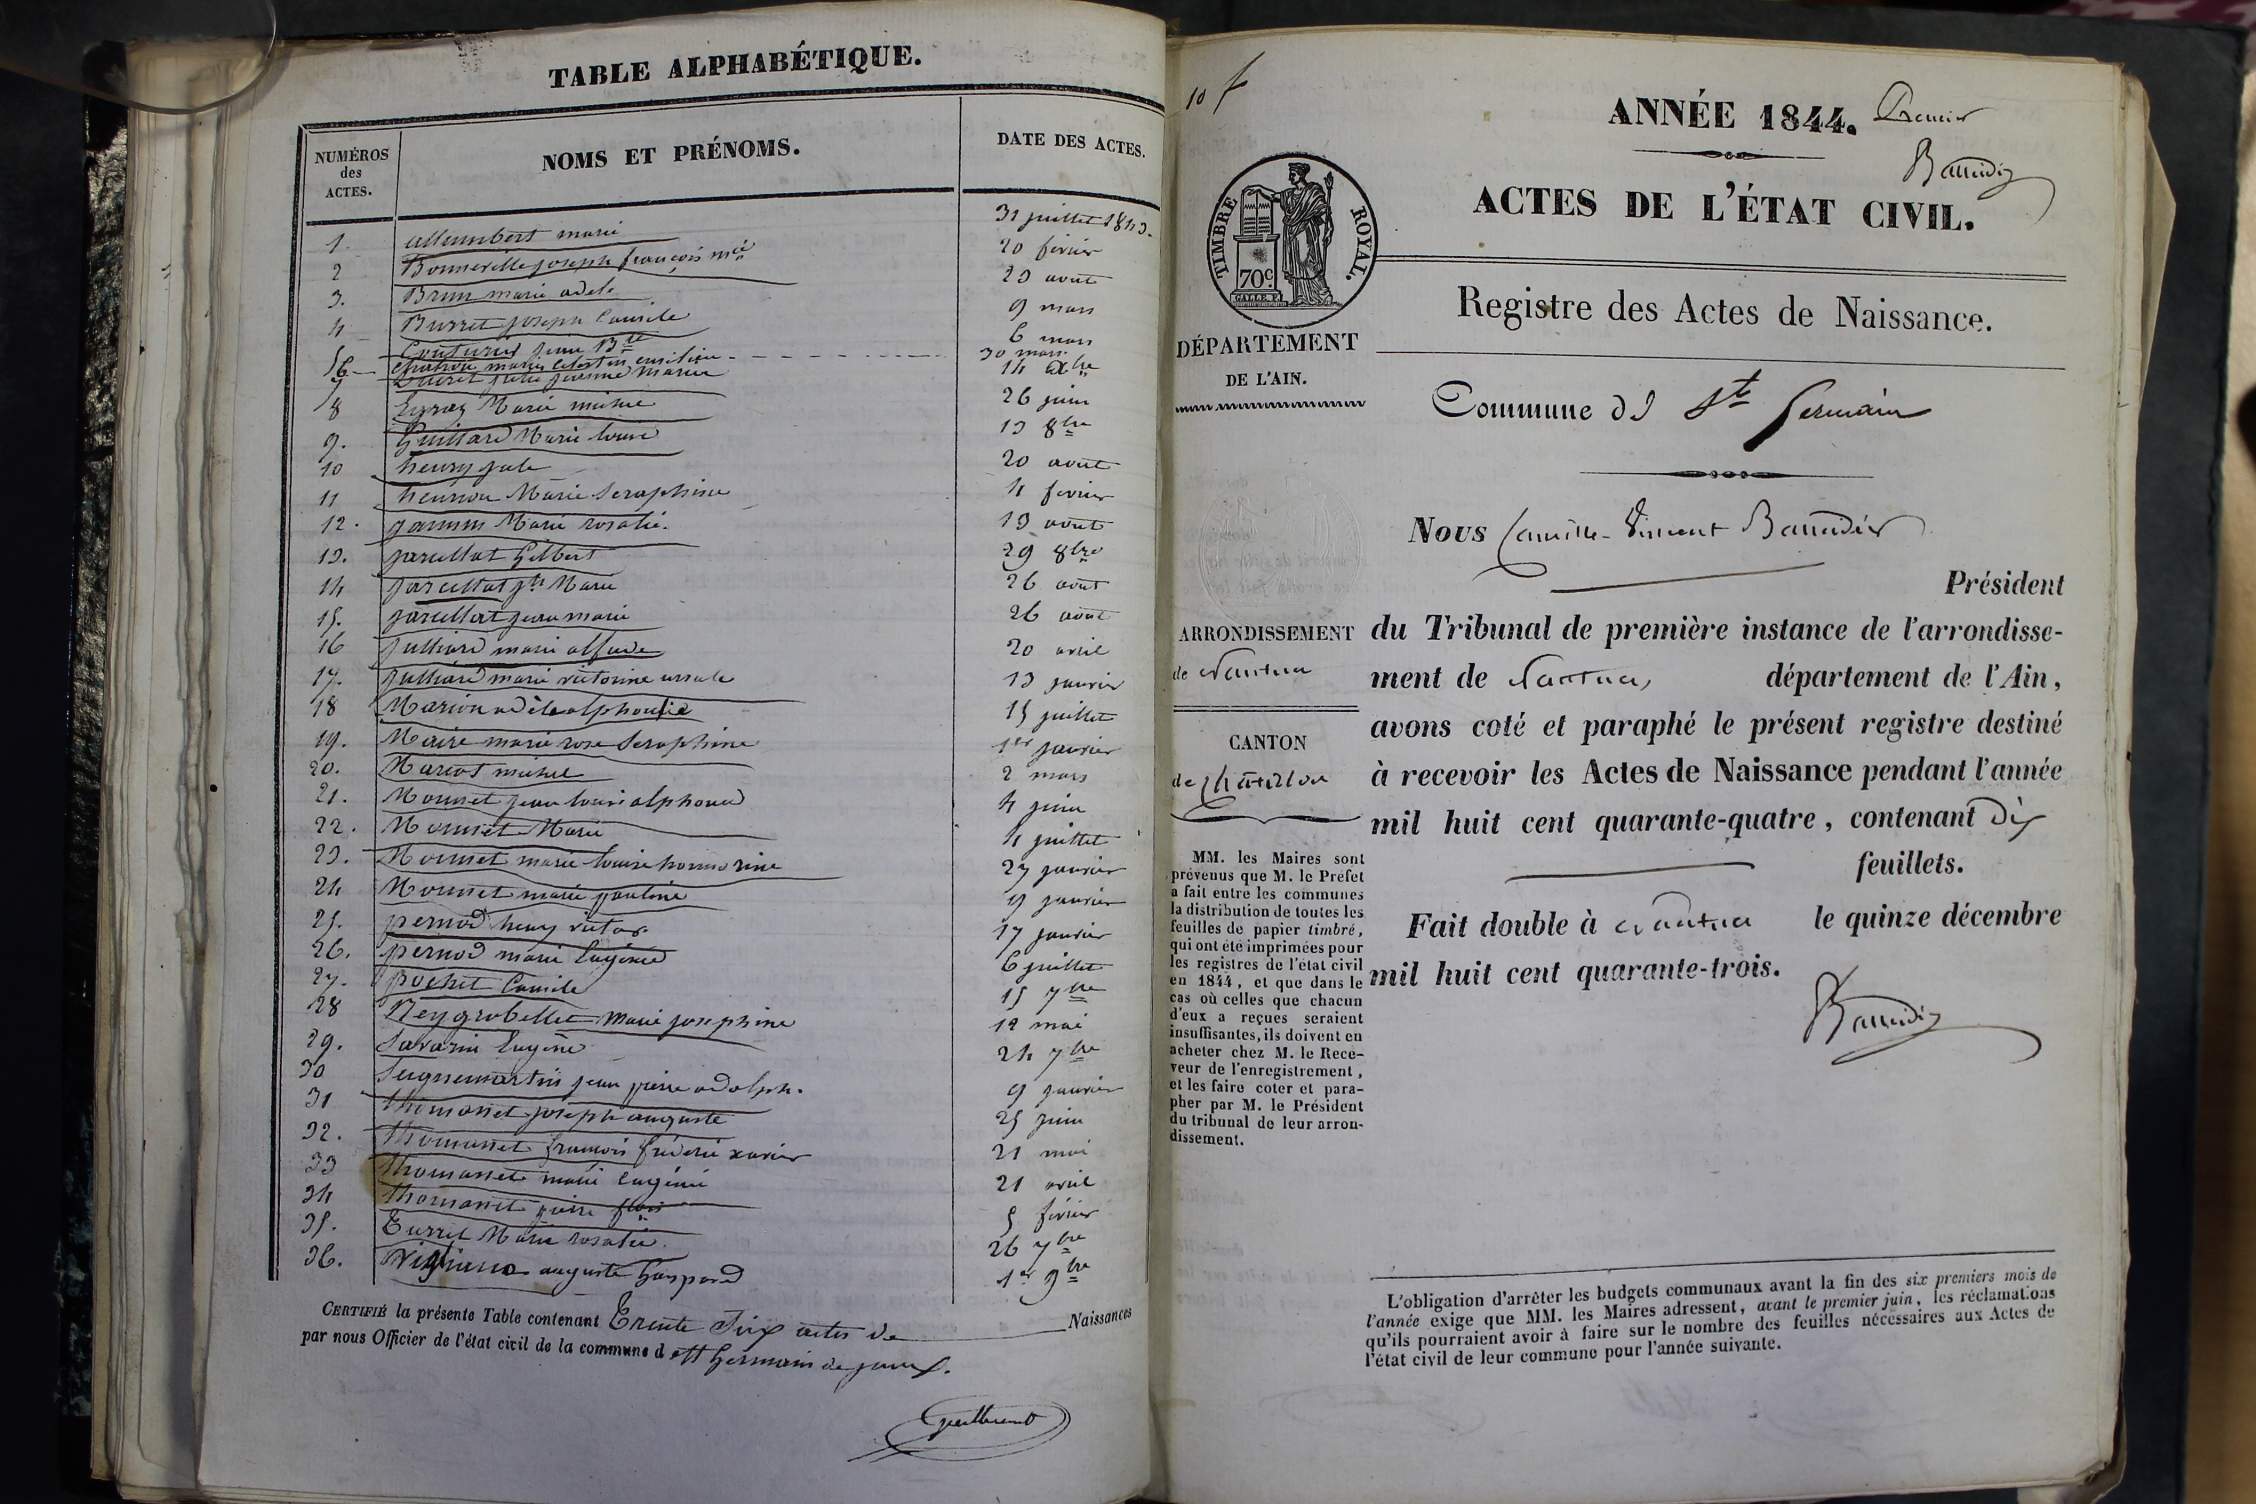 TABLE ALPHABÉTIQUE.
NUMÉROS des ACTES. NOMS ET PRÉNOMS. DATE DES ACTES.
1 allembert marie 31 juillet 1843.
2 Bonneville joseph françois mie 20 février
3. Brun marie adele 23 aout
4 Burret joseph Camile 9 mars
5 Couturier jean Bte 6 mars
6 marie celestine emilie 30 mars
7 julie marie 14 Xbre
8 Marie 26 juin
9. Guillard Marie louise 13 8bre
10 henry jule 20 aout
11 henriou Marie Seraphine 4 fevrier
12. Marie rosalie. 13 aout
13. jarcellat Gilbert 29 8bre
14 jarcellat Marie 26 aout
15. jarcellat jean marie 26 aout
16 julliard marie 20 avril
17. julliard marie victorine 13 janvier
18 Marion adèle alphonsie 15 juillet
19. Maire marie rose Seraphine 1er janvier
20. Mariot michel 2 mars
21. Monnet jean louis alphonse 4 juin
22. Monnet Marie 4 juillet
23. Monnet marie louise honnorine 27 janvier
24 Monnet marie pauline 9 janvier
25. pernod henry victor 17 janvier
26. pernod marie Eugénie 6 juillet
27. pochet Camile 15 7bre
28 Reygrobellet Marie josephine 12 mai
29. Savarin Eugène 24 7bre
30 Seignemartin jean pierre adolph. 9 janvier
31 thomasset joseph auguste 25 juin
32. thomasset françois fréderic xavier 21 mai
33 thomasset marie Eugénie 21 avril
34 thomasset pierre 5 février
35. Turrel Marie rosalie. 26 7bre
36. auguste Gaspard 1er 9bre
CERTIFIÉ la présente Table contenant Trente Six actes de Naissances
par nous Officier de l'état civil de la commune d e St Germain de joux.
10 f
ANNÉE 1844. Premier
ACTES DE L'ÉTAT CIVIL.
TIMBRE ROYAL.
70c
Registre des Actes de Naissance.
DÉPARTEMENT
DE L'AIN.
Commune de St Germain
Nous Camille-Vincent Baudier
Président
ARRONDISSEMENT
de Nantua
du Tribunal de première instance de l'arrondisse-
ment de Nantua, département de l'Ain,
avons coté et paraphé le présent registre destiné
à recevoir les Actes de Naissance pendant l'année
mil huit cent quarante-quatre, contenant Dix
feuillets.
Fait double à Nantua le quinze décembre
mil huit cent quarante-trois.
CANTON
de Châtillon
MM. les Maires sont
prévenus que M. le Préfet
a fait entre les communes
la distribution de toutes les
feuilles de papier timbré,
qui ont été imprimées pour
les registres de l'état civil
en 1844, et que dans le
cas où celles que chacun
d'eux a reçues seraient
insuffisantes, ils doivent en
acheter chez M. le Rece-
veur de l'enregistrement,
et les faire coter et para-
pher par M. le Président
du tribunal de leur arron-
dissement.
L'obligation d'arrêter les budgets communaux avant la fin des six premiers mois de
l'année exige que MM. les Maires adressent, avant le premier juin, les réclamations
qu'ils pourraient avoir à faire sur le nombre des feuilles nécessaires aux Actes de
l'état civil de leur commune pour l'année suivante.